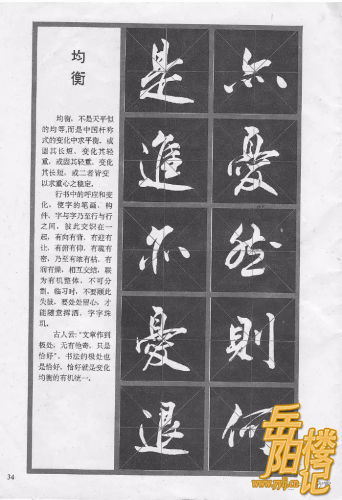 均衡
均衡，不是天平似
的均等，而是中国杆称
式的变化中求平衡，或
固其长短，变化其轻
重，或固其轻重，变化
其长短，或二者皆变
以求重心之稳定。
行书中的呼应和变
化，使字的笔画、构
件、字与字乃至行与行
之间，彼此交织在一
起，有向有背、有迎有
让、有俯有仰、有疏有
密，乃至有浓有枯、有
润有燥，相互交结，联
为有机整体，不可分
割，临习时，不要顾此
失彼，要处处留心，才
能随意挥洒，字字珠
玑。
古人云："文章作到
极处，无有他奇，只是
恰好"。书法的极处也
是恰好，恰好就是变化
均衡的有机统一。
是進亦憂退
亦憂然則何
34
岳阳楼记